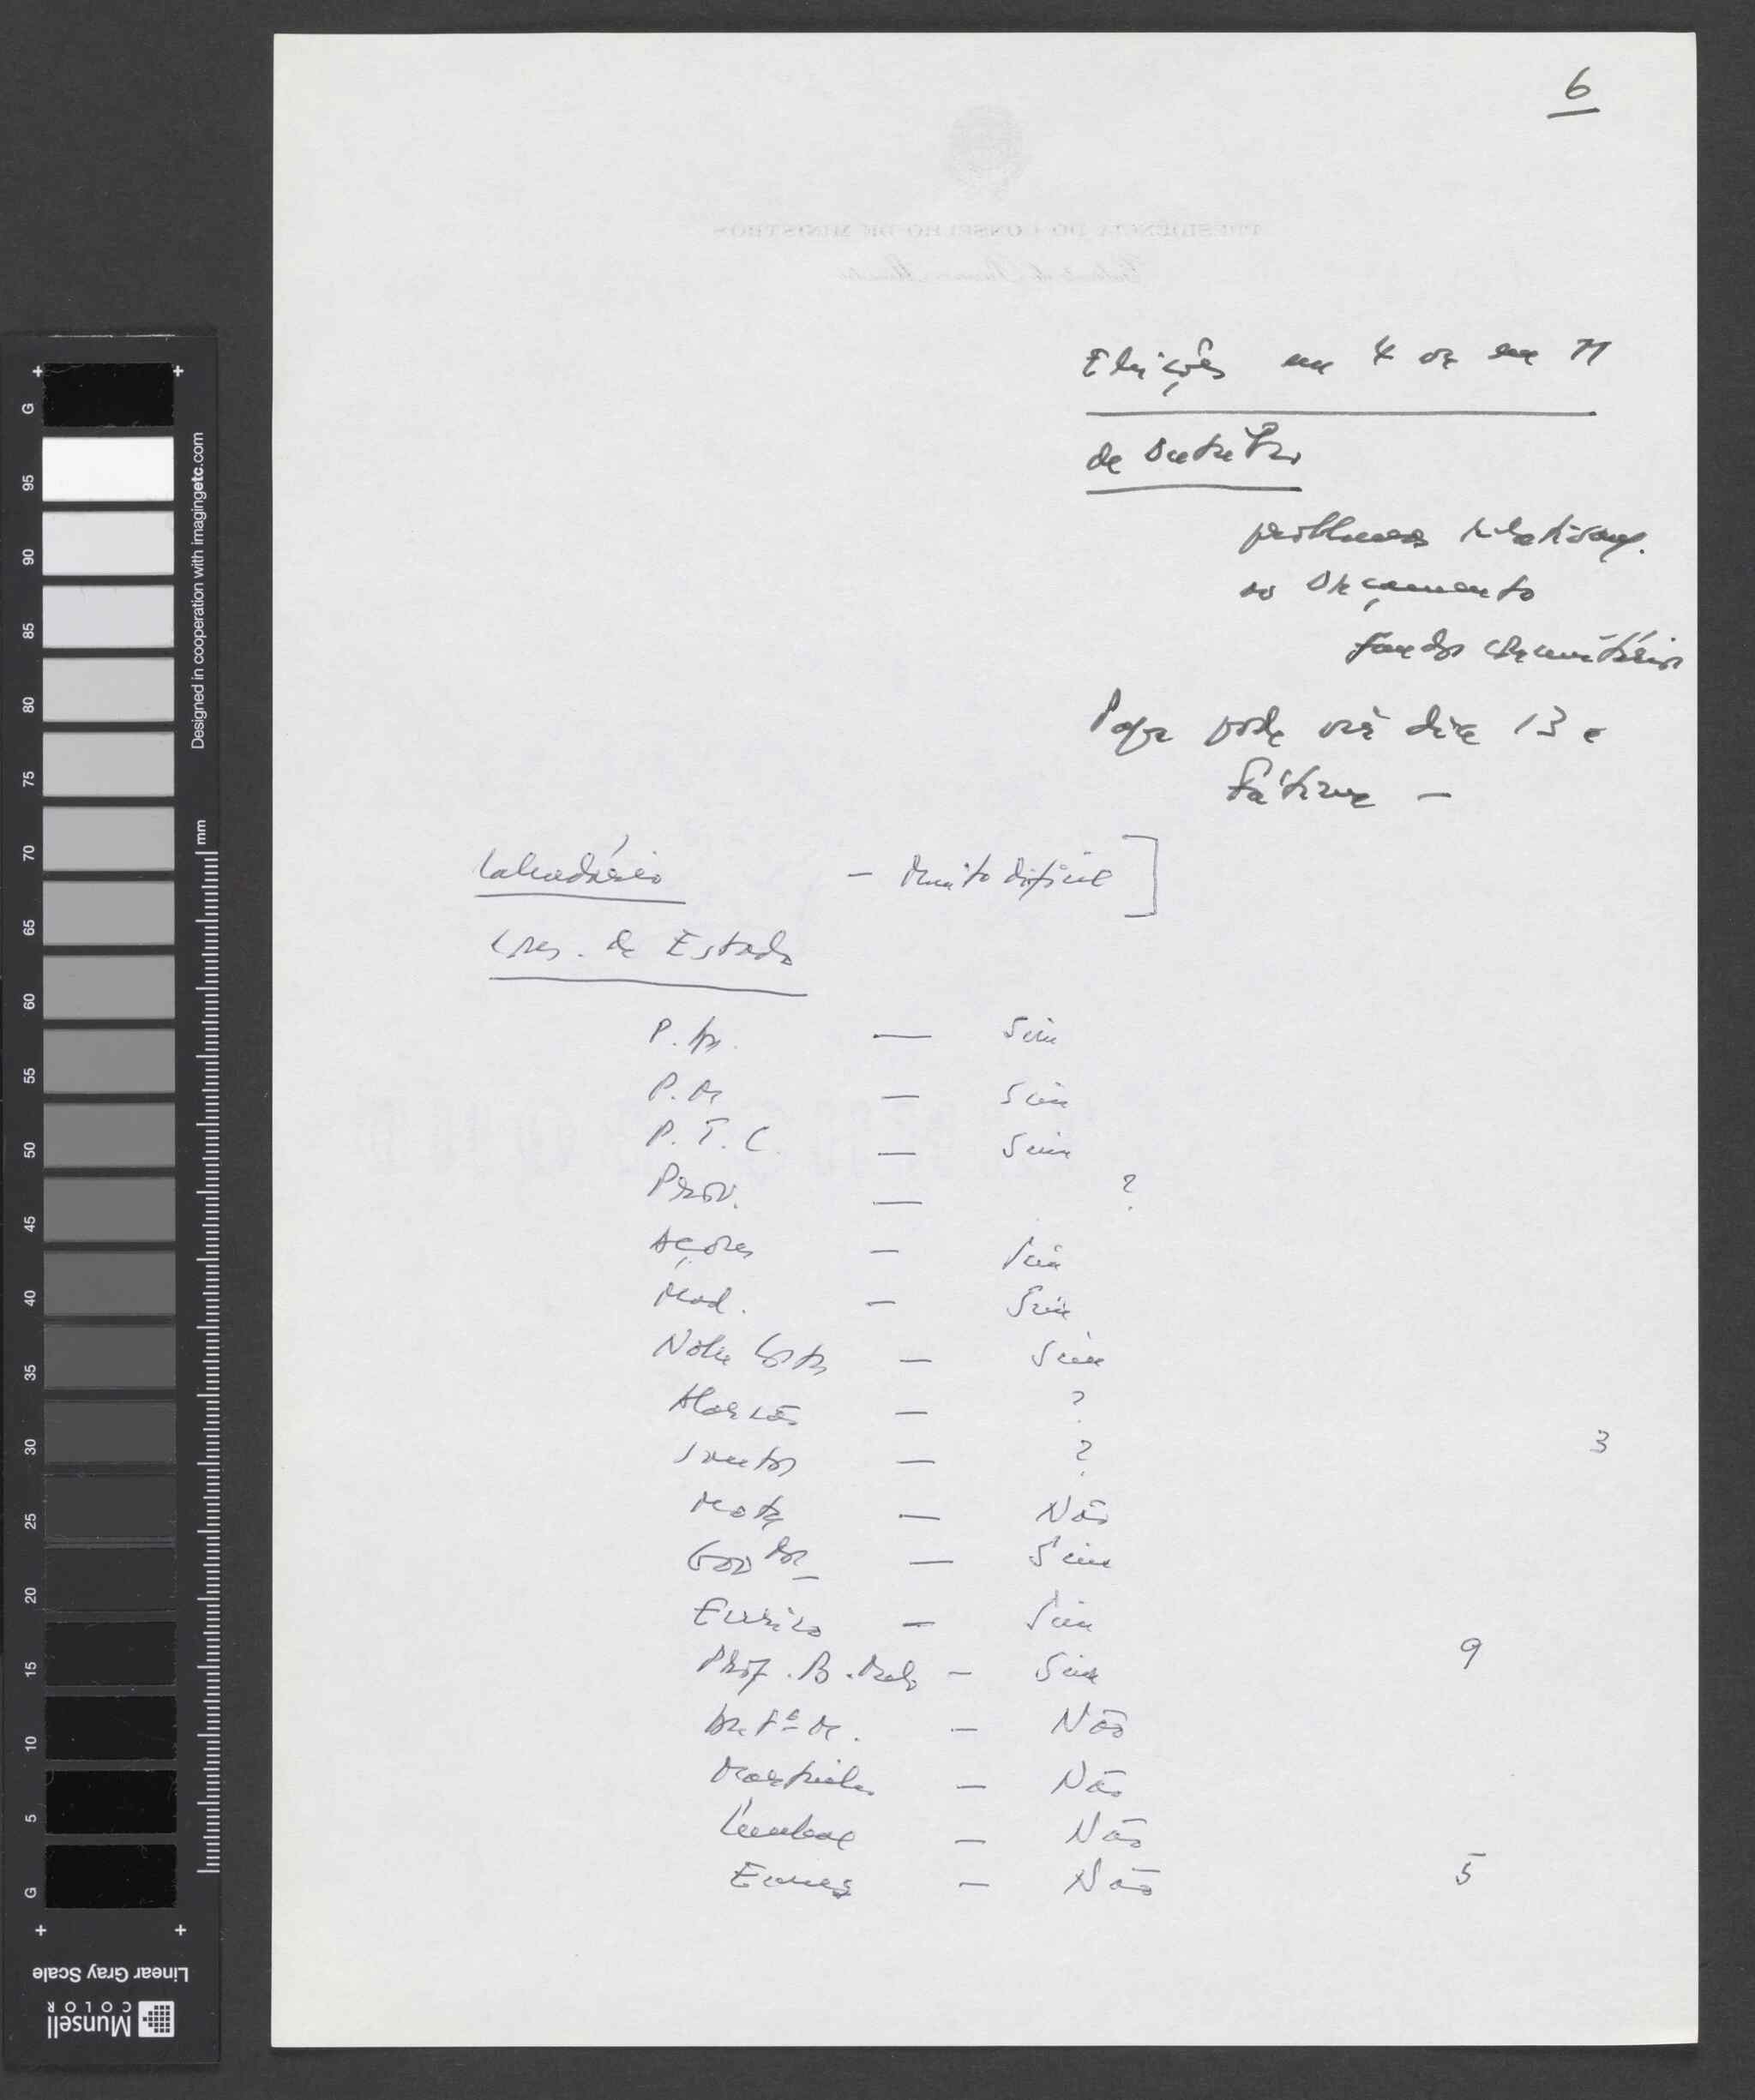 6
PRESIDÊNCIA DO CONSELHO DE MINISTROS
Eleições em 4 ou em 11
de Outubro
problemas relativam.
ao Orçamento
fundos comunitários
Papa pode vir dia 13 a
Fátima —
Calendário — Muito difícil ]
Cons. de Estado
P. — Sim
P. M — Sim
P. T. C. — Sim
Prov. — ?
Açores — Sim
Mad. — Sim
Nobre Costa — Sim
Alarcão — ?
Santos — ?
3
Mota — Não
— Sim
Eurico — Sim
Prof. B. Melo — Sim
9
— Não
Martinho — Não
Cunhal — Não
Eanes — Não
5
G
95
90
85
80
75
70
65
60
55
50
45
40
35
30
25
20
15
10
5
G
Designed in cooperation with imagingetc.com
mm
Linear Gray Scale
Munsell
COLOR